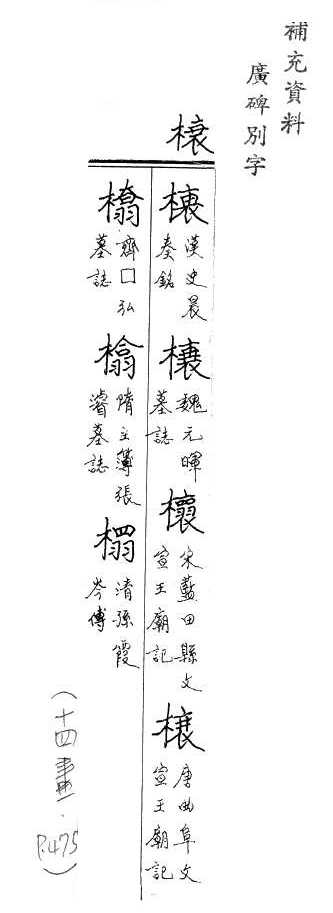 補充資料
廣碑別字
榱
漢史晨
奏銘
魏元暉
墓誌
宋藍田縣文
宣王廟記
唐曲阜文
宣王廟記
齊□弘
墓誌
隋主簿張
濬墓誌
清孫霞
岑傳
(十四畫.P.475)